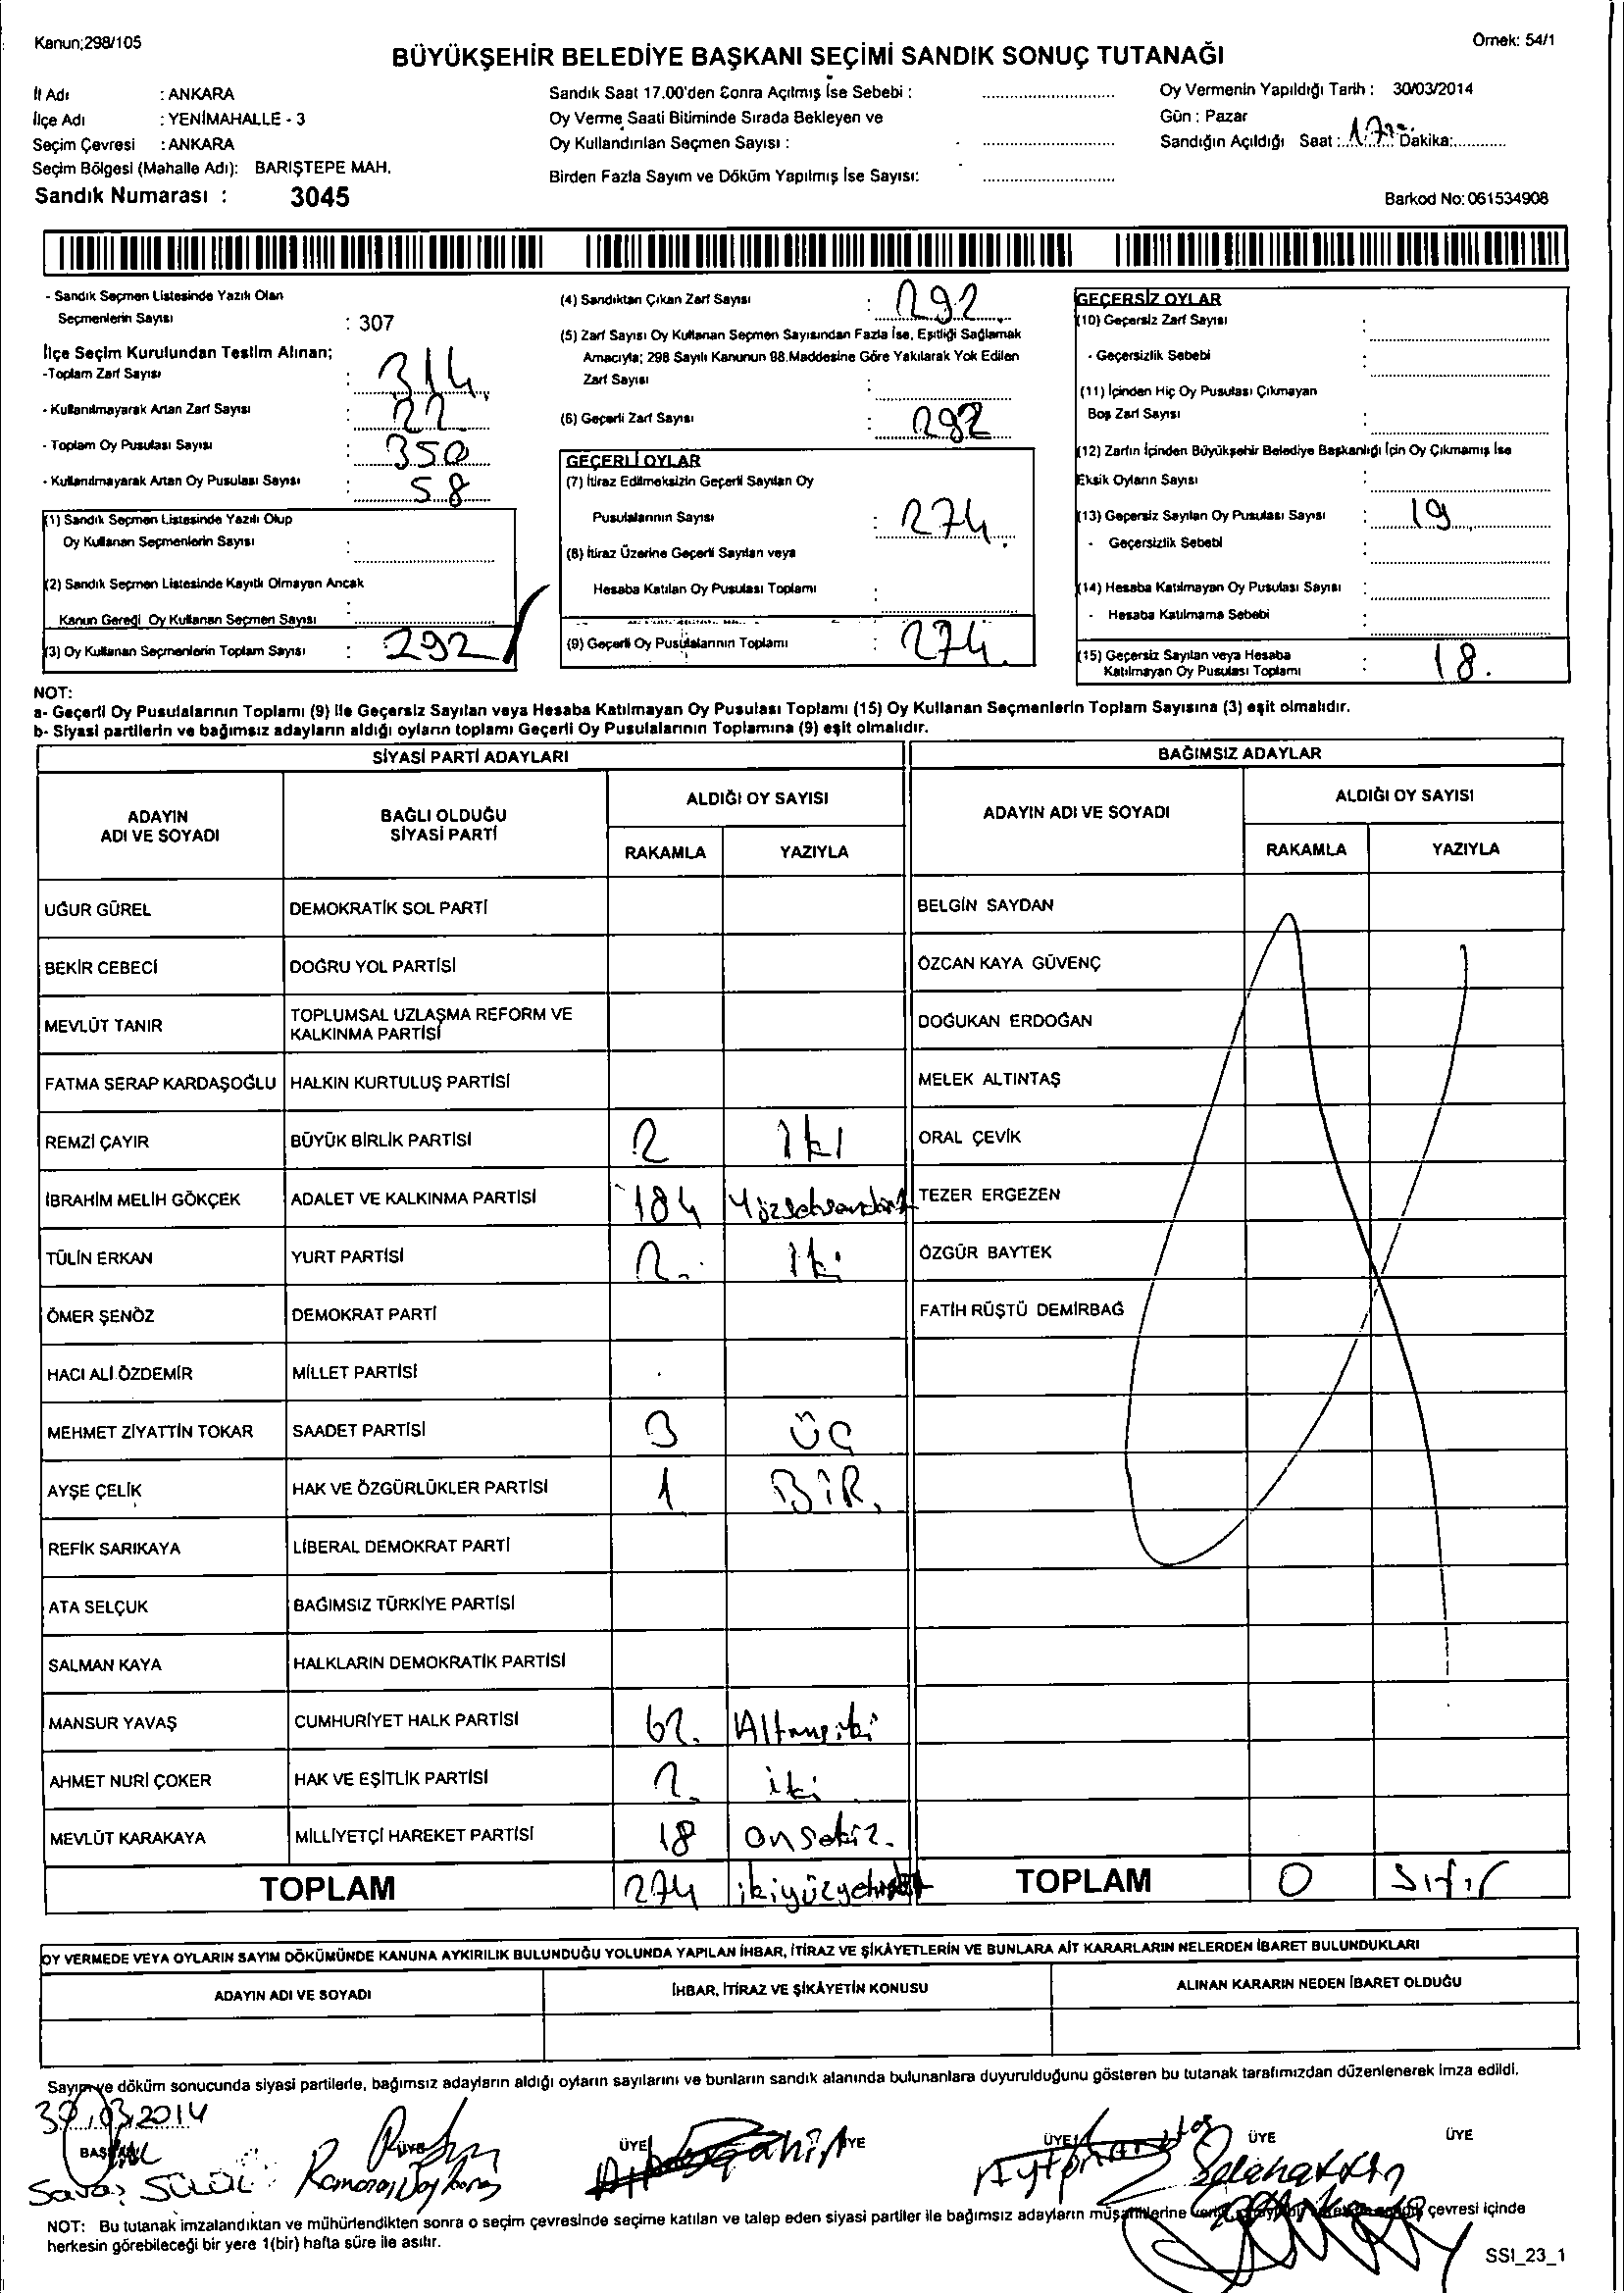 Kanun;298/105
Örnek: 54/1
BÜYÜKŞEHİR BELEDİYE BAŞKANI SEÇİMİ SANDIK SONUÇ TUTANAĞI
İl Adı : ANKARA
İlçe Adı : YENİMAHALLE - 3
Seçim Çevresi : ANKARA
Seçim Bölgesi (Mahalle Adı): BARIŞTEPE MAH.
Sandık Numarası : 3045
Sandık Saat 17.00'den Sonra Açılmış İse Sebebi :
Oy Verme Saati Bitiminde Sırada Bekleyen ve
Oy Kullandırılan Seçmen Sayısı :
Birden Fazla Sayım ve Döküm Yapılmış İse Sayısı:
Oy Vermenin Yapıldığı Tarih : 30/03/2014
Gün : Pazar
Sandığın Açıldığı Saat : 17 Dakika:
Barkod No: 061534908
- Sandık Seçmen Listesinde Yazılı Olan
Seçmenlerin Sayısı : 307
İlçe Seçim Kurulundan Teslim Alınan;
-Toplam Zarf Sayısı : 314
- Kullanılmayarak Artan Zarf Sayısı : 22
- Toplam Oy Pusulası Sayısı : 350
- Kullanılmayarak Artan Oy Pusulası Sayısı : 58
(1) Sandık Seçmen Listesinde Yazılı Olup
Oy Kullanan Seçmenlerin Sayısı :
(2) Sandık Seçmen Listesinde Kayıtlı Olmayan Ancak
Kanun Gereği Oy Kullanan Seçmen Sayısı :
(3) Oy Kullanan Seçmenlerin Toplam Sayısı : 292
(4) Sandıktan Çıkan Zarf Sayısı : 292
(5) Zarf Sayısı Oy Kullanan Seçmen Sayısından Fazla İse, Eşitliği Sağlamak
Amacıyla; 298 Sayılı Kanunun 98.Maddesine Göre Yakılarak Yok Edilen
Zarf Sayısı :
(6) Geçerli Zarf Sayısı : 292
GEÇERLİ OYLAR
(7) İtiraz Edilmeksizin Geçerli Sayılan Oy
Pusulalarının Sayısı : 274
(8) İtiraz Üzerine Geçerli Sayılan veya
Hesaba Katılan Oy Pusulası Toplamı :
(9) Geçerli Oy Pusulalarının Toplamı : 274
GEÇERSİZ OYLAR
(10) Geçersiz Zarf Sayısı :
- Geçersizlik Sebebi :
(11) İçinden Hiç Oy Pusulası Çıkmayan
Boş Zarf Sayısı :
(12) Zarfın İçinden Büyükşehir Belediye Başkanlığı İçin Oy Çıkmamış İse
Eksik Oyların Sayısı :
(13) Geçersiz Sayılan Oy Pusulası Sayısı : 19
- Geçersizlik Sebebi :
(14) Hesaba Katılmayan Oy Pusulası Sayısı :
- Hesaba Katılmama Sebebi :
(15) Geçersiz Sayılan veya Hesaba
Katılmayan Oy Pusulası Toplamı : 18.
NOT:
a- Geçerli Oy Pusulalarının Toplamı (9) ile Geçersiz Sayılan veya Hesaba Katılmayan Oy Pusulası Toplamı (15) Oy Kullanan Seçmenlerin Toplam Sayısına (3) eşit olmalıdır.
b- Siyasi partilerin ve bağımsız adayların aldığı oyların toplamı Geçerli Oy Pusulalarının Toplamına (9) eşit olmalıdır.
SİYASİ PARTİ ADAYLARI
BAĞIMSIZ ADAYLAR
ADAYIN ADI VE SOYADI
BAĞLI OLDUĞU SİYASİ PARTİ
ALDIĞI OY SAYISI
RAKAMLA YAZIYLA
ADAYIN ADI VE SOYADI
ALDIĞI OY SAYISI
RAKAMLA YAZIYLA
UĞUR GÜREL DEMOKRATİK SOL PARTİ BELGİN SAYDAN
BEKİR CEBECİ DOĞRU YOL PARTİSİ ÖZCAN KAYA GÜVENÇ
MEVLÜT TANIR TOPLUMSAL UZLAŞMA REFORM VE KALKINMA PARTİSİ DOĞUKAN ERDOĞAN
FATMA SERAP KARDAŞOĞLU HALKIN KURTULUŞ PARTİSİ MELEK ALTINTAŞ
REMZİ ÇAYIR BÜYÜK BİRLİK PARTİSİ 2 İki ORAL ÇEVİK
İBRAHİM MELİH GÖKÇEK ADALET VE KALKINMA PARTİSİ 184 Yüzseksendört TEZER ERGEZEN
TÜLİN ERKAN YURT PARTİSİ 2. İki ÖZGÜR BAYTEK
ÖMER ŞENÖZ DEMOKRAT PARTİ FATİH RÜŞTÜ DEMİRBAĞ
HACI ALİ ÖZDEMİR MİLLET PARTİSİ
MEHMET ZİYATTİN TOKAR SAADET PARTİSİ 3 ÜÇ
AYŞE ÇELİK HAK VE ÖZGÜRLÜKLER PARTİSİ 1 BİR.
REFİK SARIKAYA LİBERAL DEMOKRAT PARTİ
ATA SELÇUK BAĞIMSIZ TÜRKİYE PARTİSİ
SALMAN KAYA HALKLARIN DEMOKRATİK PARTİSİ
MANSUR YAVAŞ CUMHURİYET HALK PARTİSİ 62. Altmışiki
AHMET NURİ ÇOKER HAK VE EŞİTLİK PARTİSİ 2. iki
MEVLÜT KARAKAYA MİLLİYETÇİ HAREKET PARTİSİ 18 onsekiz.
TOPLAM 274 ikiyüzyetmişdört TOPLAM 0 Sıfır
OY VERMEDE VEYA OYLARIN SAYIM DÖKÜMÜNDE KANUNA AYKIRILIK BULUNDUĞU YOLUNDA YAPILAN İHBAR, İTİRAZ VE ŞİKÂYETLERİN VE BUNLARA AİT KARARLARIN NELERDEN İBARET BULUNDUKLARI
ADAYIN ADI VE SOYADI İHBAR, İTİRAZ VE ŞİKÂYETİN KONUSU ALINAN KARARIN NEDEN İBARET OLDUĞU
Sayım ve döküm sonucunda siyasi partilerle, bağımsız adayların aldığı oyların sayılarını ve bunların sandık alanında bulunanlara duyurulduğunu gösteren bu tutanak tarafımızdan düzenlenerek imza edildi.
30.03.2014
BAŞKAN ÜYE ÜYE ÜYE ÜYE ÜYE ÜYE
Savaş Ramazan Selahattin
NOT: Bu tutanak imzalandıktan ve mühürlendikten sonra o seçim çevresinde seçime katılan ve talep eden siyasi partiler ile bağımsız adayların müşahitlerine çevresi içinde
herkesin görebileceği bir yere 1(bir) hafta süre ile asılır.
SSI_23_1